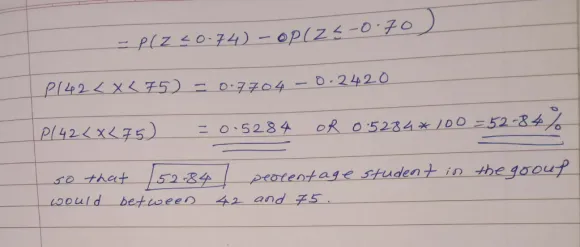 = P(Z ≤ 0.74) - P(Z ≤ -0.70)
P(42 < x < 75) = 0.7704 - 0.2420
P(42 < x < 75) = 0.5284 OR 0.5284 * 100 = 52.84%
so that 52.84 percentage student in the group
would between 42 and 75.